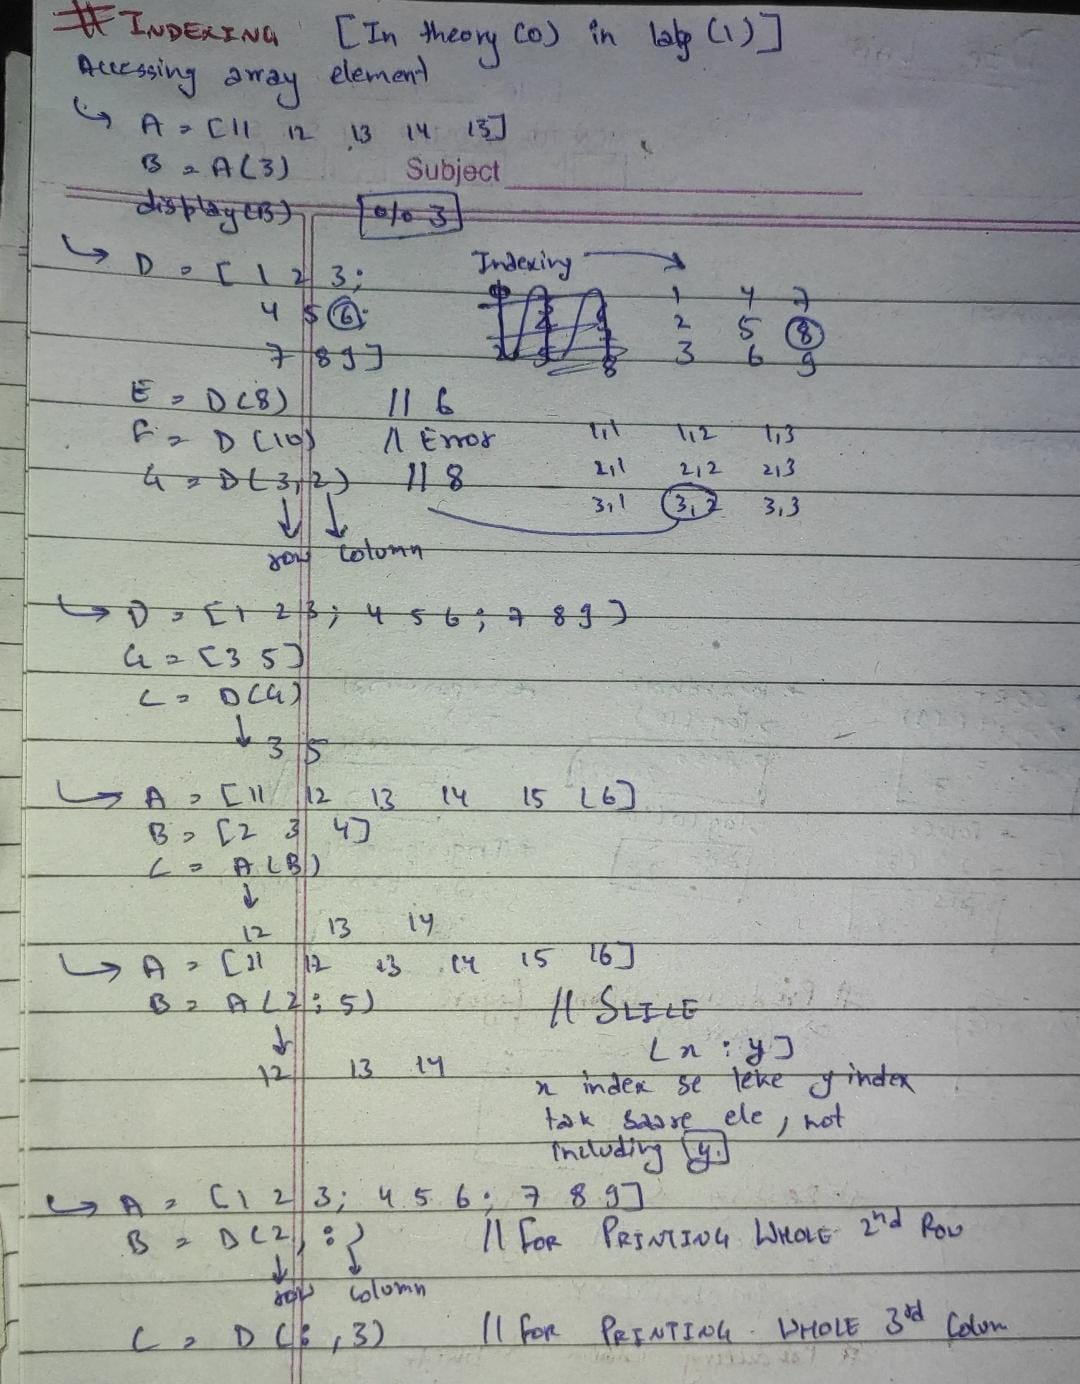 # INDEXING [In theory (0) in lab (1)]
Accessing array element
↳ A = [11 12 13 14 15]
B = A(3)
Subject
display(B) [o/o 3]
↳ D = [1 2 3;
4 5 6;
7 8 9]
Indexing →
1 4 7
2 5 8
3 6 9
E = D(8) // 6
F = D(10) // Error
G = D(3,2) // 8
↓ ↓
row column
1,1 1,2 1,3
2,1 2,2 2,3
3,1 3,2 3,3
↳ D = [1 2 3; 4 5 6; 7 8 9]
G = [3 5]
C = D(G)
↓ 3 5
↳ A = [11 12 13 14 15 16]
B = [2 3 4]
C = A(B)
↓
12 13 14
↳ A = [11 12 13 14 15 16]
B = A(2:5) // SLICE
↓ [x : y]
12 13 14
x index se leke y index
tak saare ele, not
including [y.]
↳ A = [1 2 3; 4 5 6; 7 8 9]
B = D(2, :) // FOR PRINTING WHOLE 2nd Row
↓ ↓
row column
C = D(:, 3) // FOR PRINTING WHOLE 3rd Colum